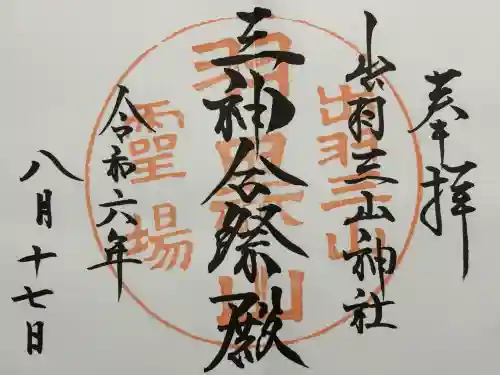 奉拝
出羽三山神社
三神合祭殿
令和六年
八月十七日
出羽三山
羽黒山
靈場